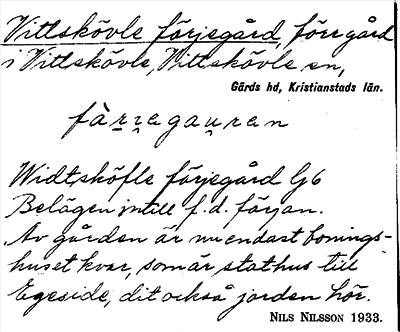 Vittskövle färjegård, förr gård
i Vittskövle, Vittskövle sn,
Gärds hd, Kristianstads län.
fàr̯ɿagau̯ran
Widtsköfle färjegård G6
Belägen intill f.d. färjan.
Av gården är nu endast bonings-
huset kvar, som är stathus till
Egeside, dit också jorden hör.
NILS NILSSON 1933.